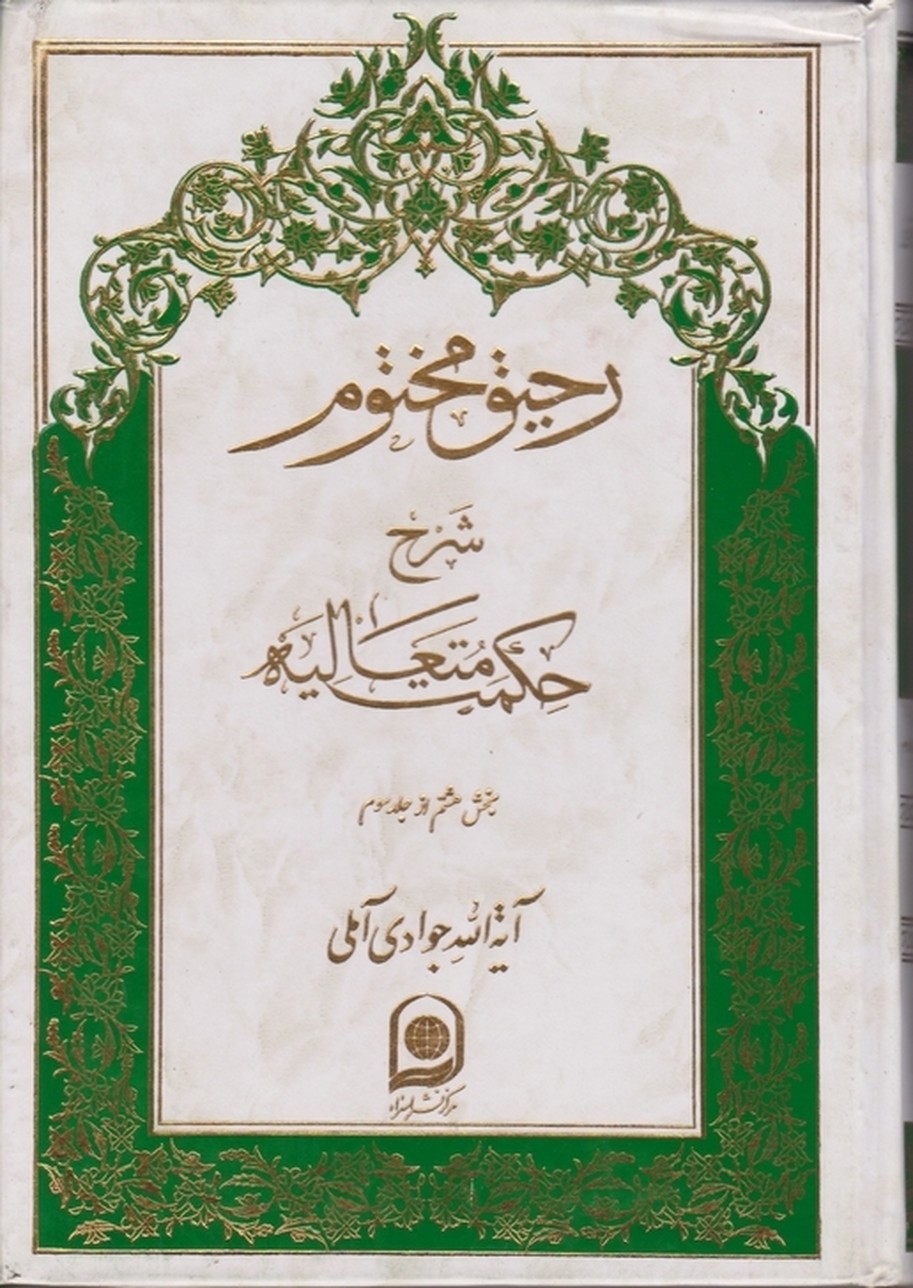 رحیق مختوم
شرح
حکمت متعالیه
بخش هشتم از جلد سوم
آیة الله جوادی آملی
مرکز نشر اسراء